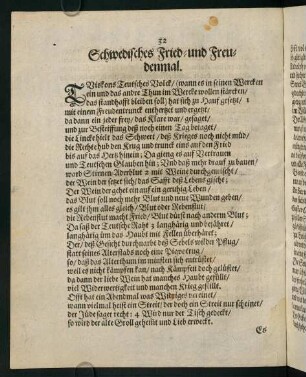 52
Schwedisches Fried- und Freu-
denmal.
TUiskons Teutsches Volck/ (wann es in seinen Wercken
ein und das andre Thun im Wercke wollen stärcken/
das standhafft bleiben soll) hat sich zu Hauf gesetzt/
mit einem Freudentrunck entherzet und ergetzt/
da dann ein jeder frey/ das Klare war/ gesaget/
und zur Bekräfftung deß noch einen Tag betaget/
die Lincke hielt das Schwert/ deß Krieges noch nicht müd/
die Rechte hub den Krug und trunck eins auf den Fried
bis auf das Hertz hinein. Da gieng es auf Vertrauen
und Teutschen Glauben hin: Und daß mehr drauf zu bauen/
ward Stirnen-Aderblut mit Weine durchgemischt/
der Wein den setzet sich/ das Safft deß Lebens gischt;
Der Wein der gehet ein auf ein geruhig Leben/
das Blut soll noch mehr Blut und neue Wunden geben/
es gilt ihm alles gleich/ Blut oder Rebenblut;
die Rebenflut macht Fried/ Blut dürst nach anderm Blut;
Da saß der Teutsche Raht/ langhärig und bejähret/
langhärig üm das Haubt mit Fellen überhäret.
Der/ deß Gesicht durchnarbt deß Sebels wilder Pflug/
statt seines Alterstabs noch eine Picke trug/
so/ daß das Alterthum im müsten sich entrüstet/
weil es nicht kämpfen kan/ nach Kämpfen doch gelüstet/
da dann der liebe Wein hat manches Haubt gefüllt/
viel Widerwertigkeit und manchen Krieg gestillt.
Offt hat ein Abendmal was Witziges vereinet/
wann vielmal heist ein Streit/ der doch ein Streit nur scheinet/
der Jüde saget recht: Wird nur der Tisch gedeckt/
so wird der alte Groll geheilt und Lieb erweckt.
Es